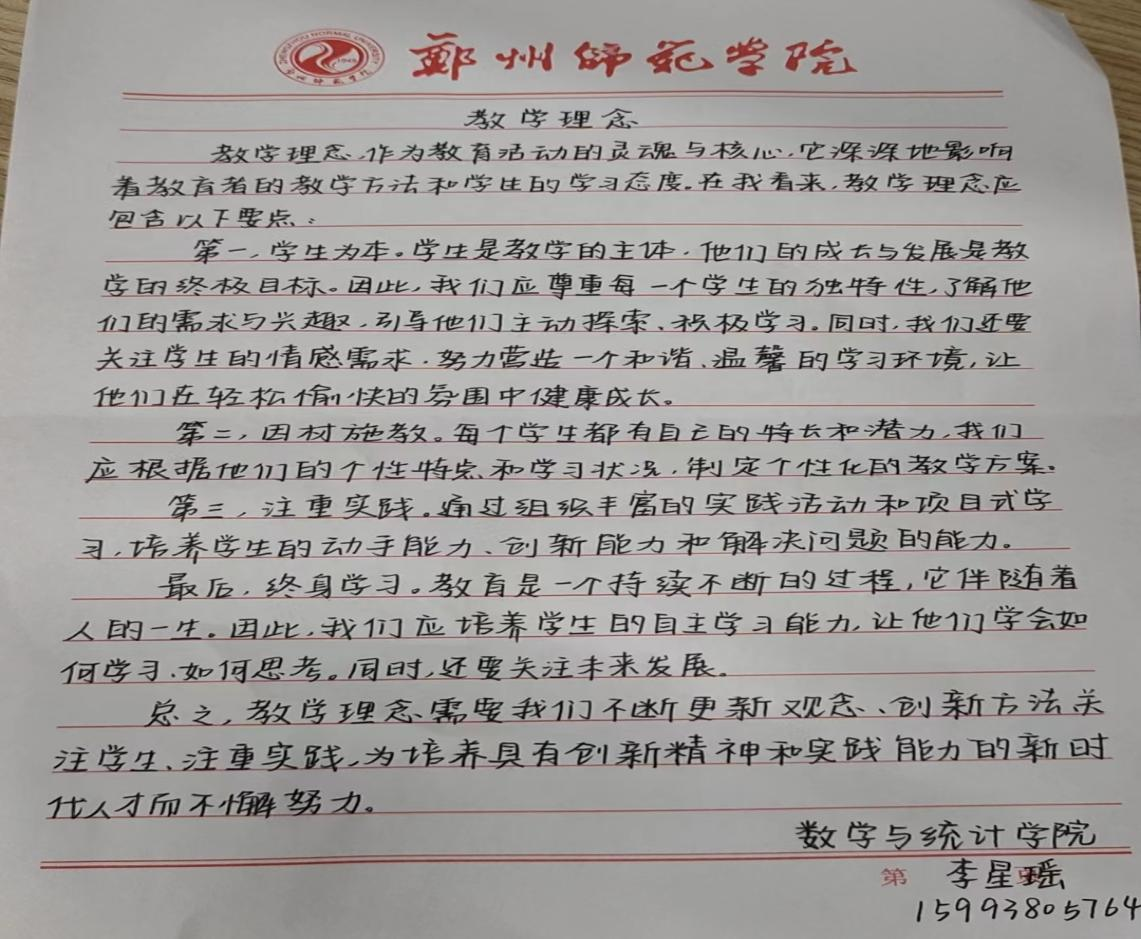 ZHENGZHOU NORMAL UNIVERSITY
1949
郑州师范学院
郑州师范学院
教学理念
教学理念,作为教育活动的灵魂与核心,它深深地影响
着教育者的教学方法和学生的学习态度。在我看来,教学理念应
包含以下要点:
第一,学生为本。学生是教学的主体,他们的成长与发展是教
学的终极目标。因此,我们应尊重每一个学生的独特性,了解他
们的需求与兴趣,引导他们主动探索、积极学习。同时,我们还要
关注学生的情感需求,努力营造一个和谐、温馨的学习环境,让
他们在轻松愉快的氛围中健康成长。
第二,因材施教。每个学生都有自己的特长和潜力,我们
应根据他们的个性特点和学习状况,制定个性化的教学方案。
第三,注重实践。通过组织丰富的实践活动和项目式学
习,培养学生的动手能力、创新能力和解决问题的能力。
最后,终身学习。教育是一个持续不断的过程,它伴随着
人的一生。因此,我们应培养学生的自主学习能力,让他们学会如
何学习、如何思考。同时,还要关注未来发展。
总之,教学理念需要我们不断更新观念、创新方法关
注学生、注重实践,为培养具有创新精神和实践能力的新时
代人才而不懈努力。
数学与统计学院
第 页
李星瑶
15993805764